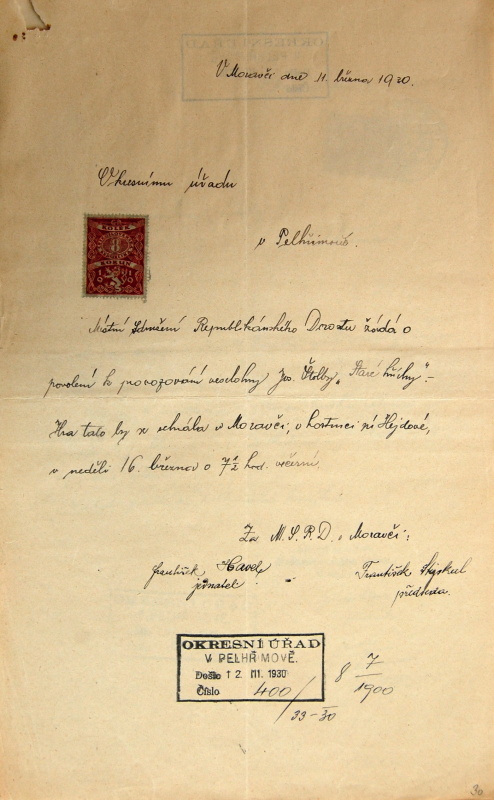 V Moravči dne 11. března 1930.
Okresnímu úřadu
KOLEK
8
KORUN
v Pelhřimově.
Místní Sdružení Republikánského Dorostu žádá o
povolení k provozování veselohry Jos. Štolby „Staré hříchy“ –
Hra tato by se sehrála v Moravči, v hostinci pí Hejdové,
v neděli 16. března o 7½ hod. večerní.
Za M.S.R.D. v Moravči:
František Havel
jednatel
František
předseda.
OKRESNÍ ÚŘAD
V PELHŘIMOVĚ.
Došlo 12. III. 1930
Číslo 400/
33-30
8 7/1900
30
OKRESNÍ ÚŘAD